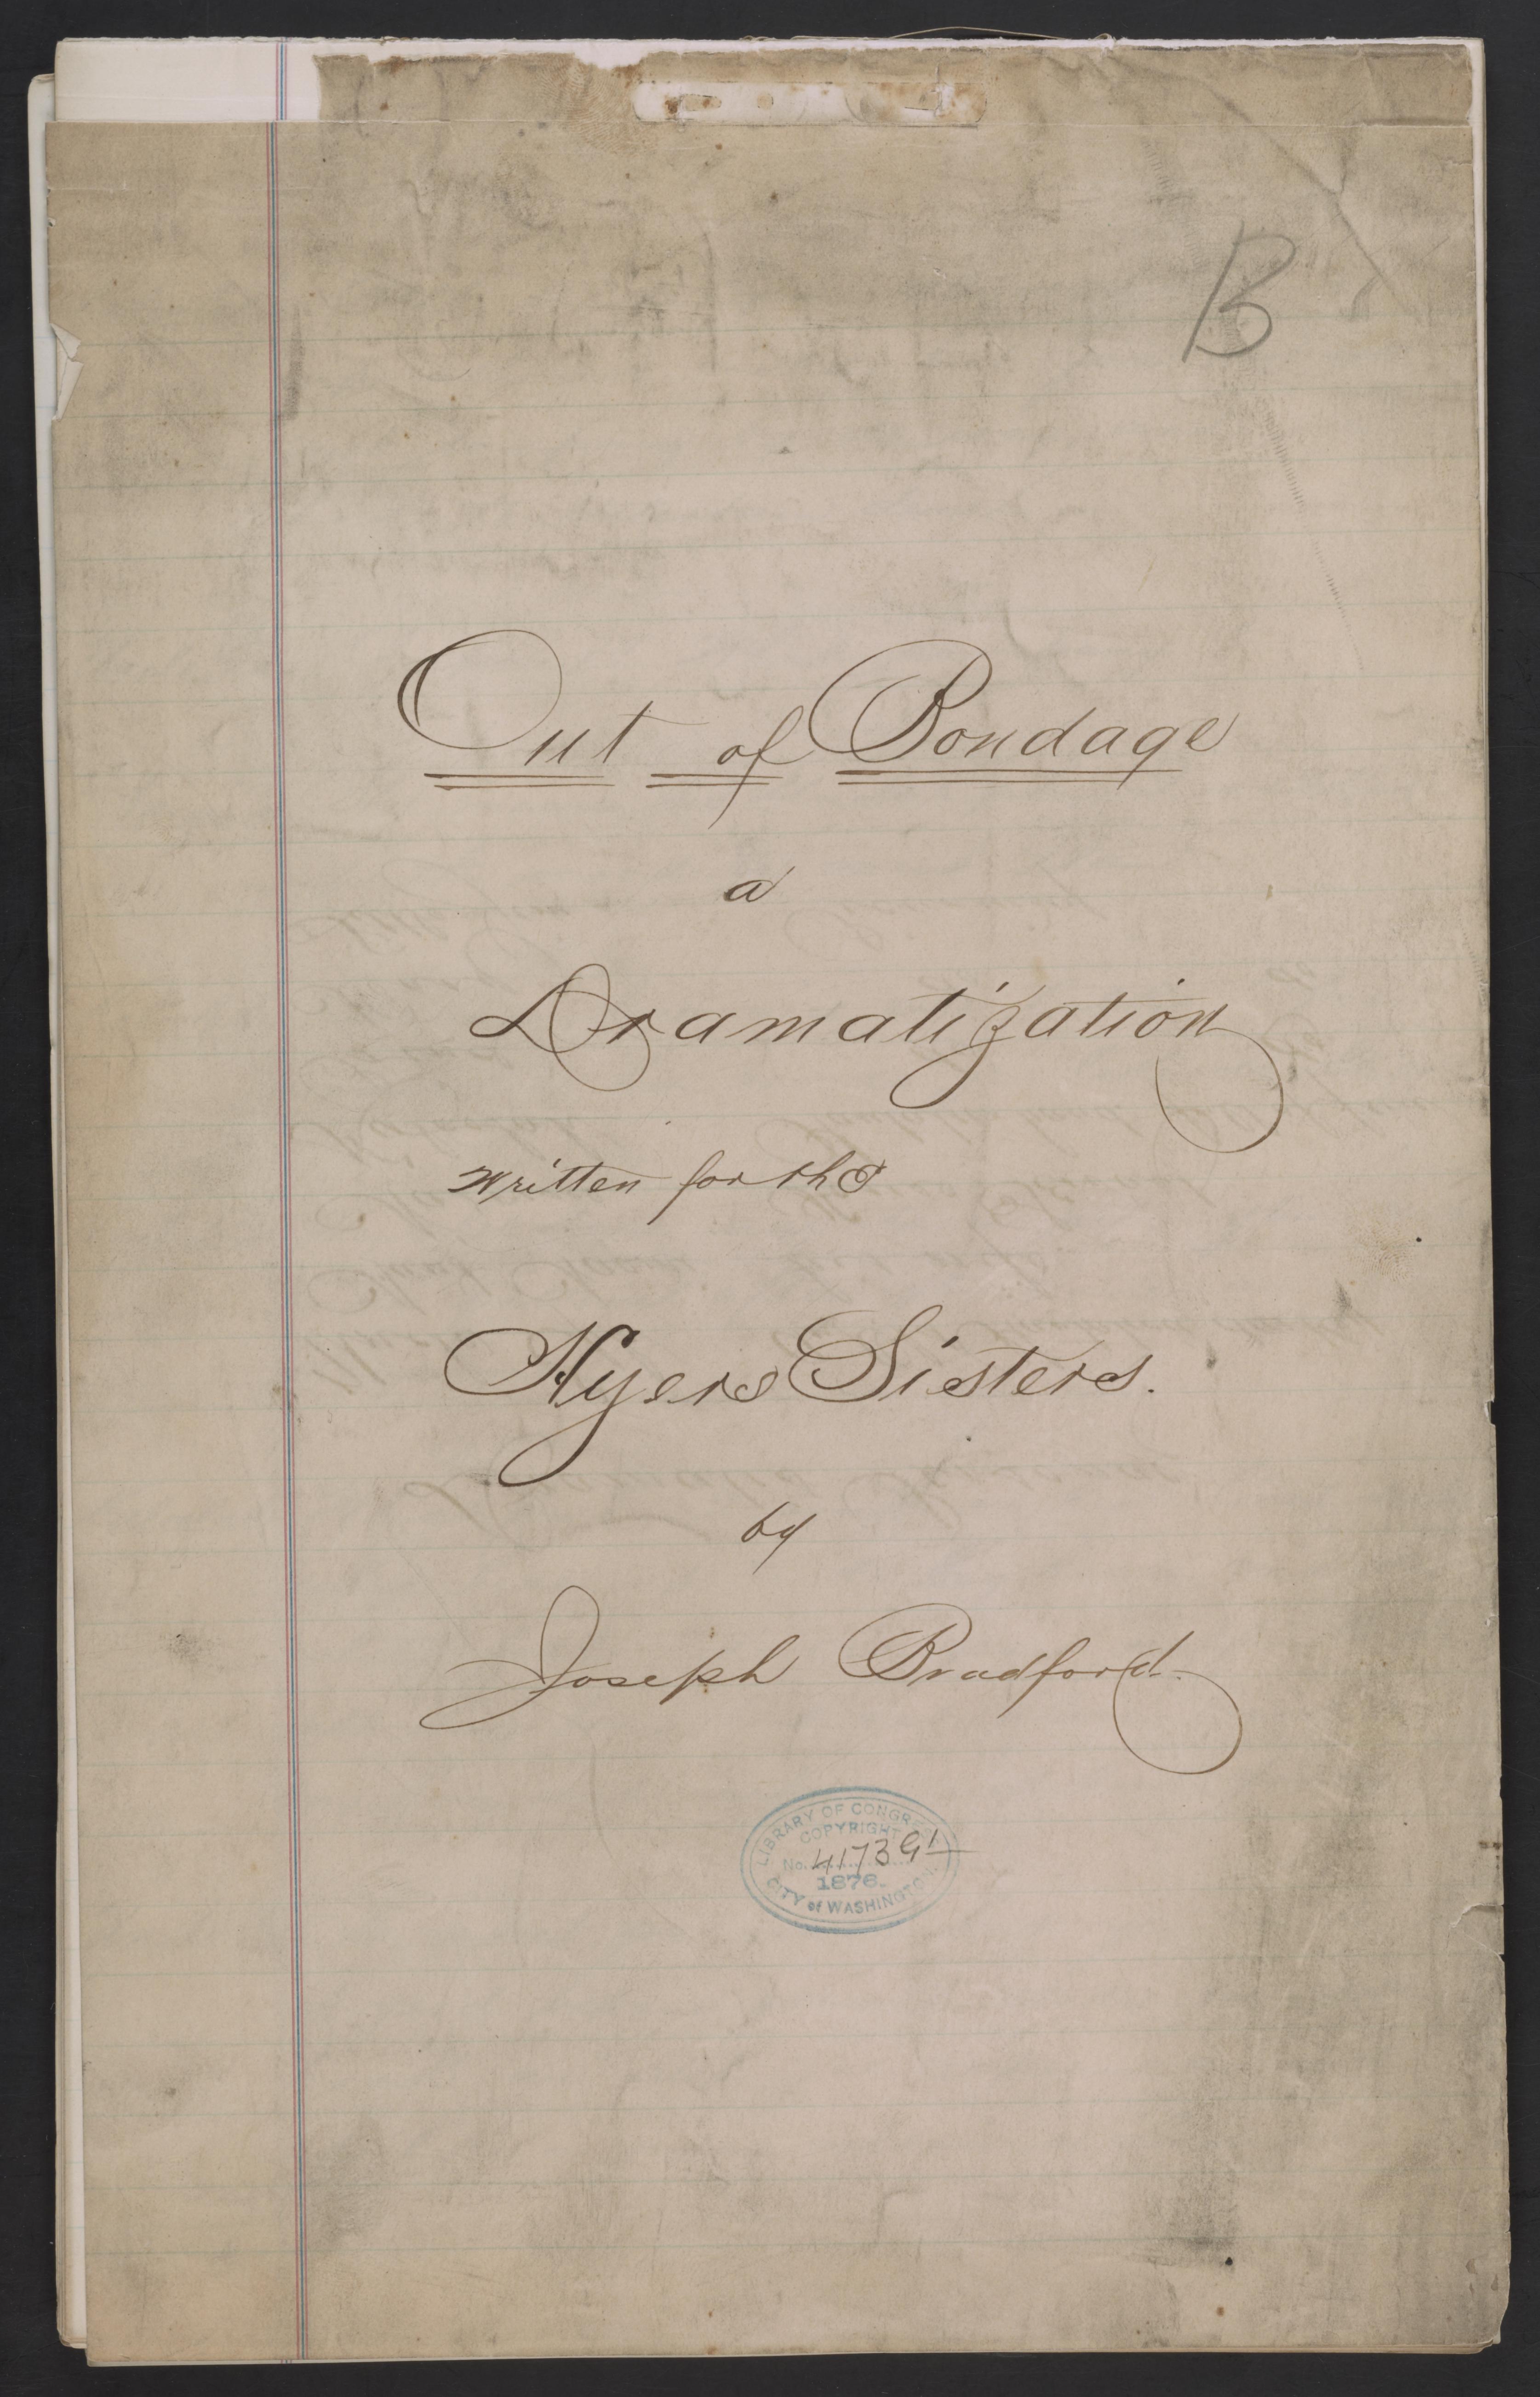 B
Out of Bondage
a
Dramatization
Written for the
Hyers Sisters.
by
Joseph Bradford.
LIBRARY OF CONGRESS
COPYRIGHT
No. 4173
1876.
CITY of WASHINGTON.